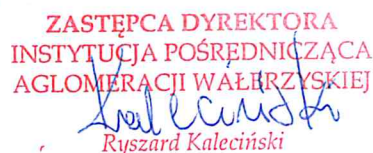 ZASTĘPCA DYREKTORA
INSTYTUCJA POŚREDNICZĄCA
AGLOMERACJI WAŁBRZYSKIEJ
Kaleciński
Ryszard Kaleciński